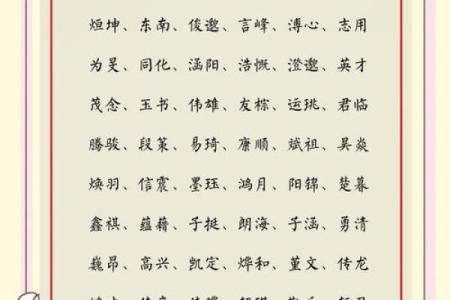 烜坤、东南、俊邈、言峰、溥心、志用
为旻、同化、涵阳、浩慨、澄邈、英才
茂念、玉书、伟雄、友棕、运珧、君临
腾骏、段策、易琦、廉顺、斌祖、昊焱
焕羽、信震、墨珏、鸿月、阳锦、楚暮
鑫祺、蕴藉、子挺、朗海、子涵、勇清
巍昂、高兴、凯定、烨和、董文、传龙